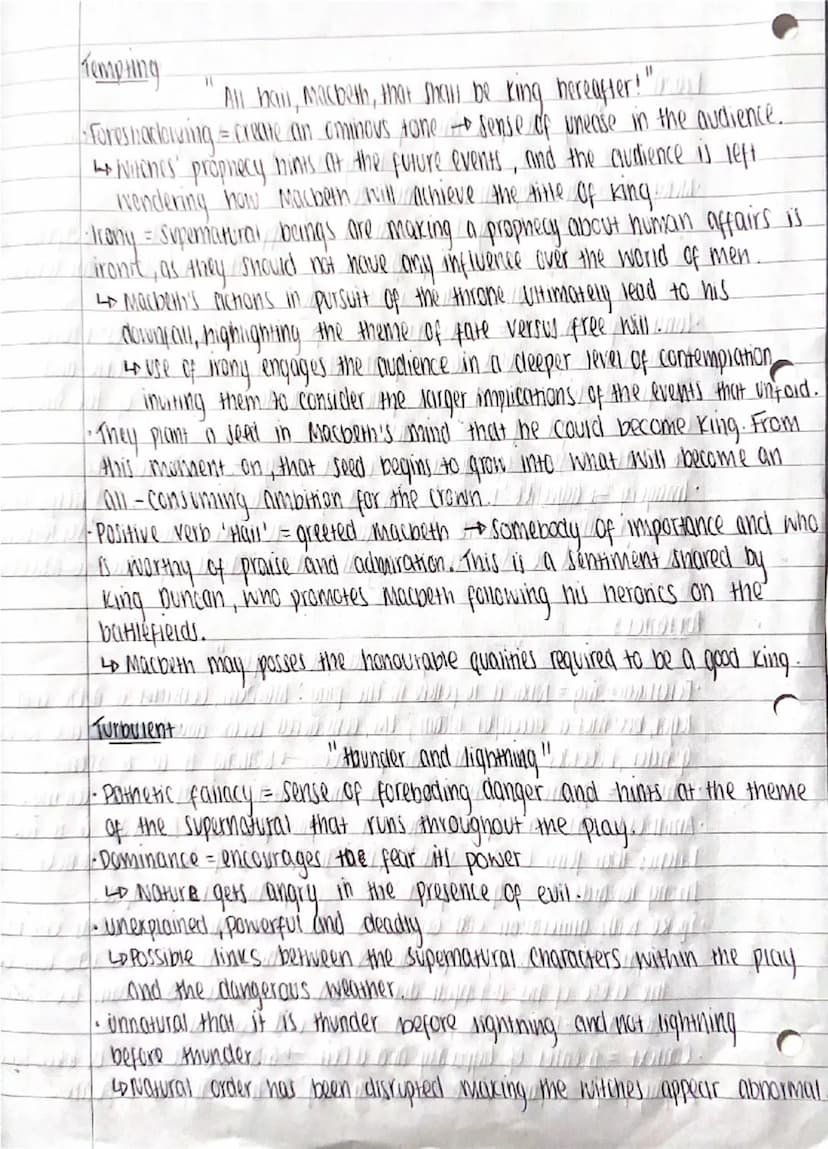 Tempting
"All hail, Macbeth, that shall be king hereafter!"
·Foreshadowing = create an ominous tone → sense of unease in the audience.
↳ Witches' prophecy hints at the future events, and the audience is left
wondering how Macbeth will achieve the title of king.
·Irony = supernatural beings are making a prophecy about human affairs is
ironic, as they should not have any influence over the world of men.
↳ Macbeth's actions in pursuit of the throne ultimately lead to his
downfall, highlighting the theme of fate versus free will.
↳ use of irony engages the audience in a deeper level of contemplation,
inviting them to consider the larger implications of the events that unfold.
·They plant a seed in Macbeth's mind that he could become king. From
this moment on, that seed begins to grow into what will become an
all-consuming ambition for the crown.
·Positive verb 'Hail' = greeted Macbeth → somebody of importance and who
is worthy of praise and admiration. This is a sentiment shared by
King Duncan, who promotes Macbeth following his heroics on the
battlefields.
↳ Macbeth may posses the honourable qualities required to be a good king.
Turbulent
"thunder and lightning"
·Pathetic fallacy = sense of foreboding danger and hints at the theme
of the supernatural that runs throughout the play.
·Dominance = encourages fear its power
↳ Nature gets angry in the presence of evil.
·unexplained, powerful and deadly
↳Possible links between the supernatural characters within the play
and the dangerous weather.
·unnatural that it is thunder before lightning and not lightning
before thunder.
↳Natural order has been disrupted making the witches appear abnormal